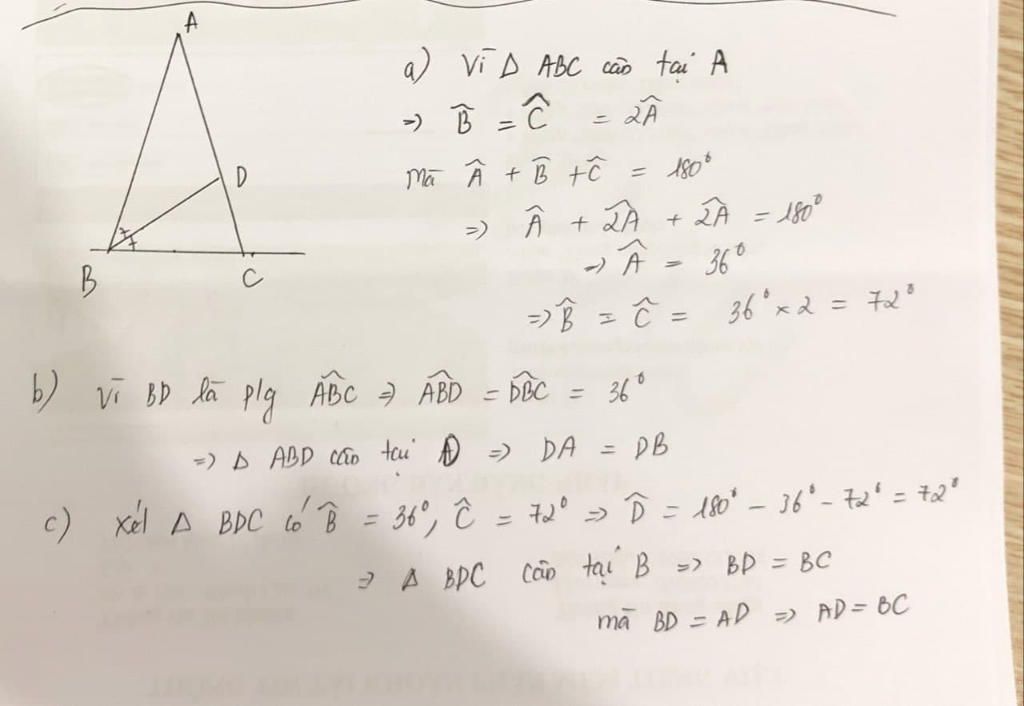 A
D
B
C
a) Vì Δ ABC cân tại A
=> B̂ = Ĉ = 2Â
Mà Â + B̂ + Ĉ = 180°
=> Â + 2Â + 2Â = 180°
=> Â = 36°
=> B̂ = Ĉ = 36° × 2 = 72°
b) Vì BD là p/g ABC => ABD = DBC = 36°
=> Δ ABD cân tại D => DA = DB
c) Xét Δ BDC có B̂ = 36°, Ĉ = 72° => D̂ = 180° - 36° - 72° = 72°
=> Δ BDC cân tại B => BD = BC
mà BD = AD => AD = BC